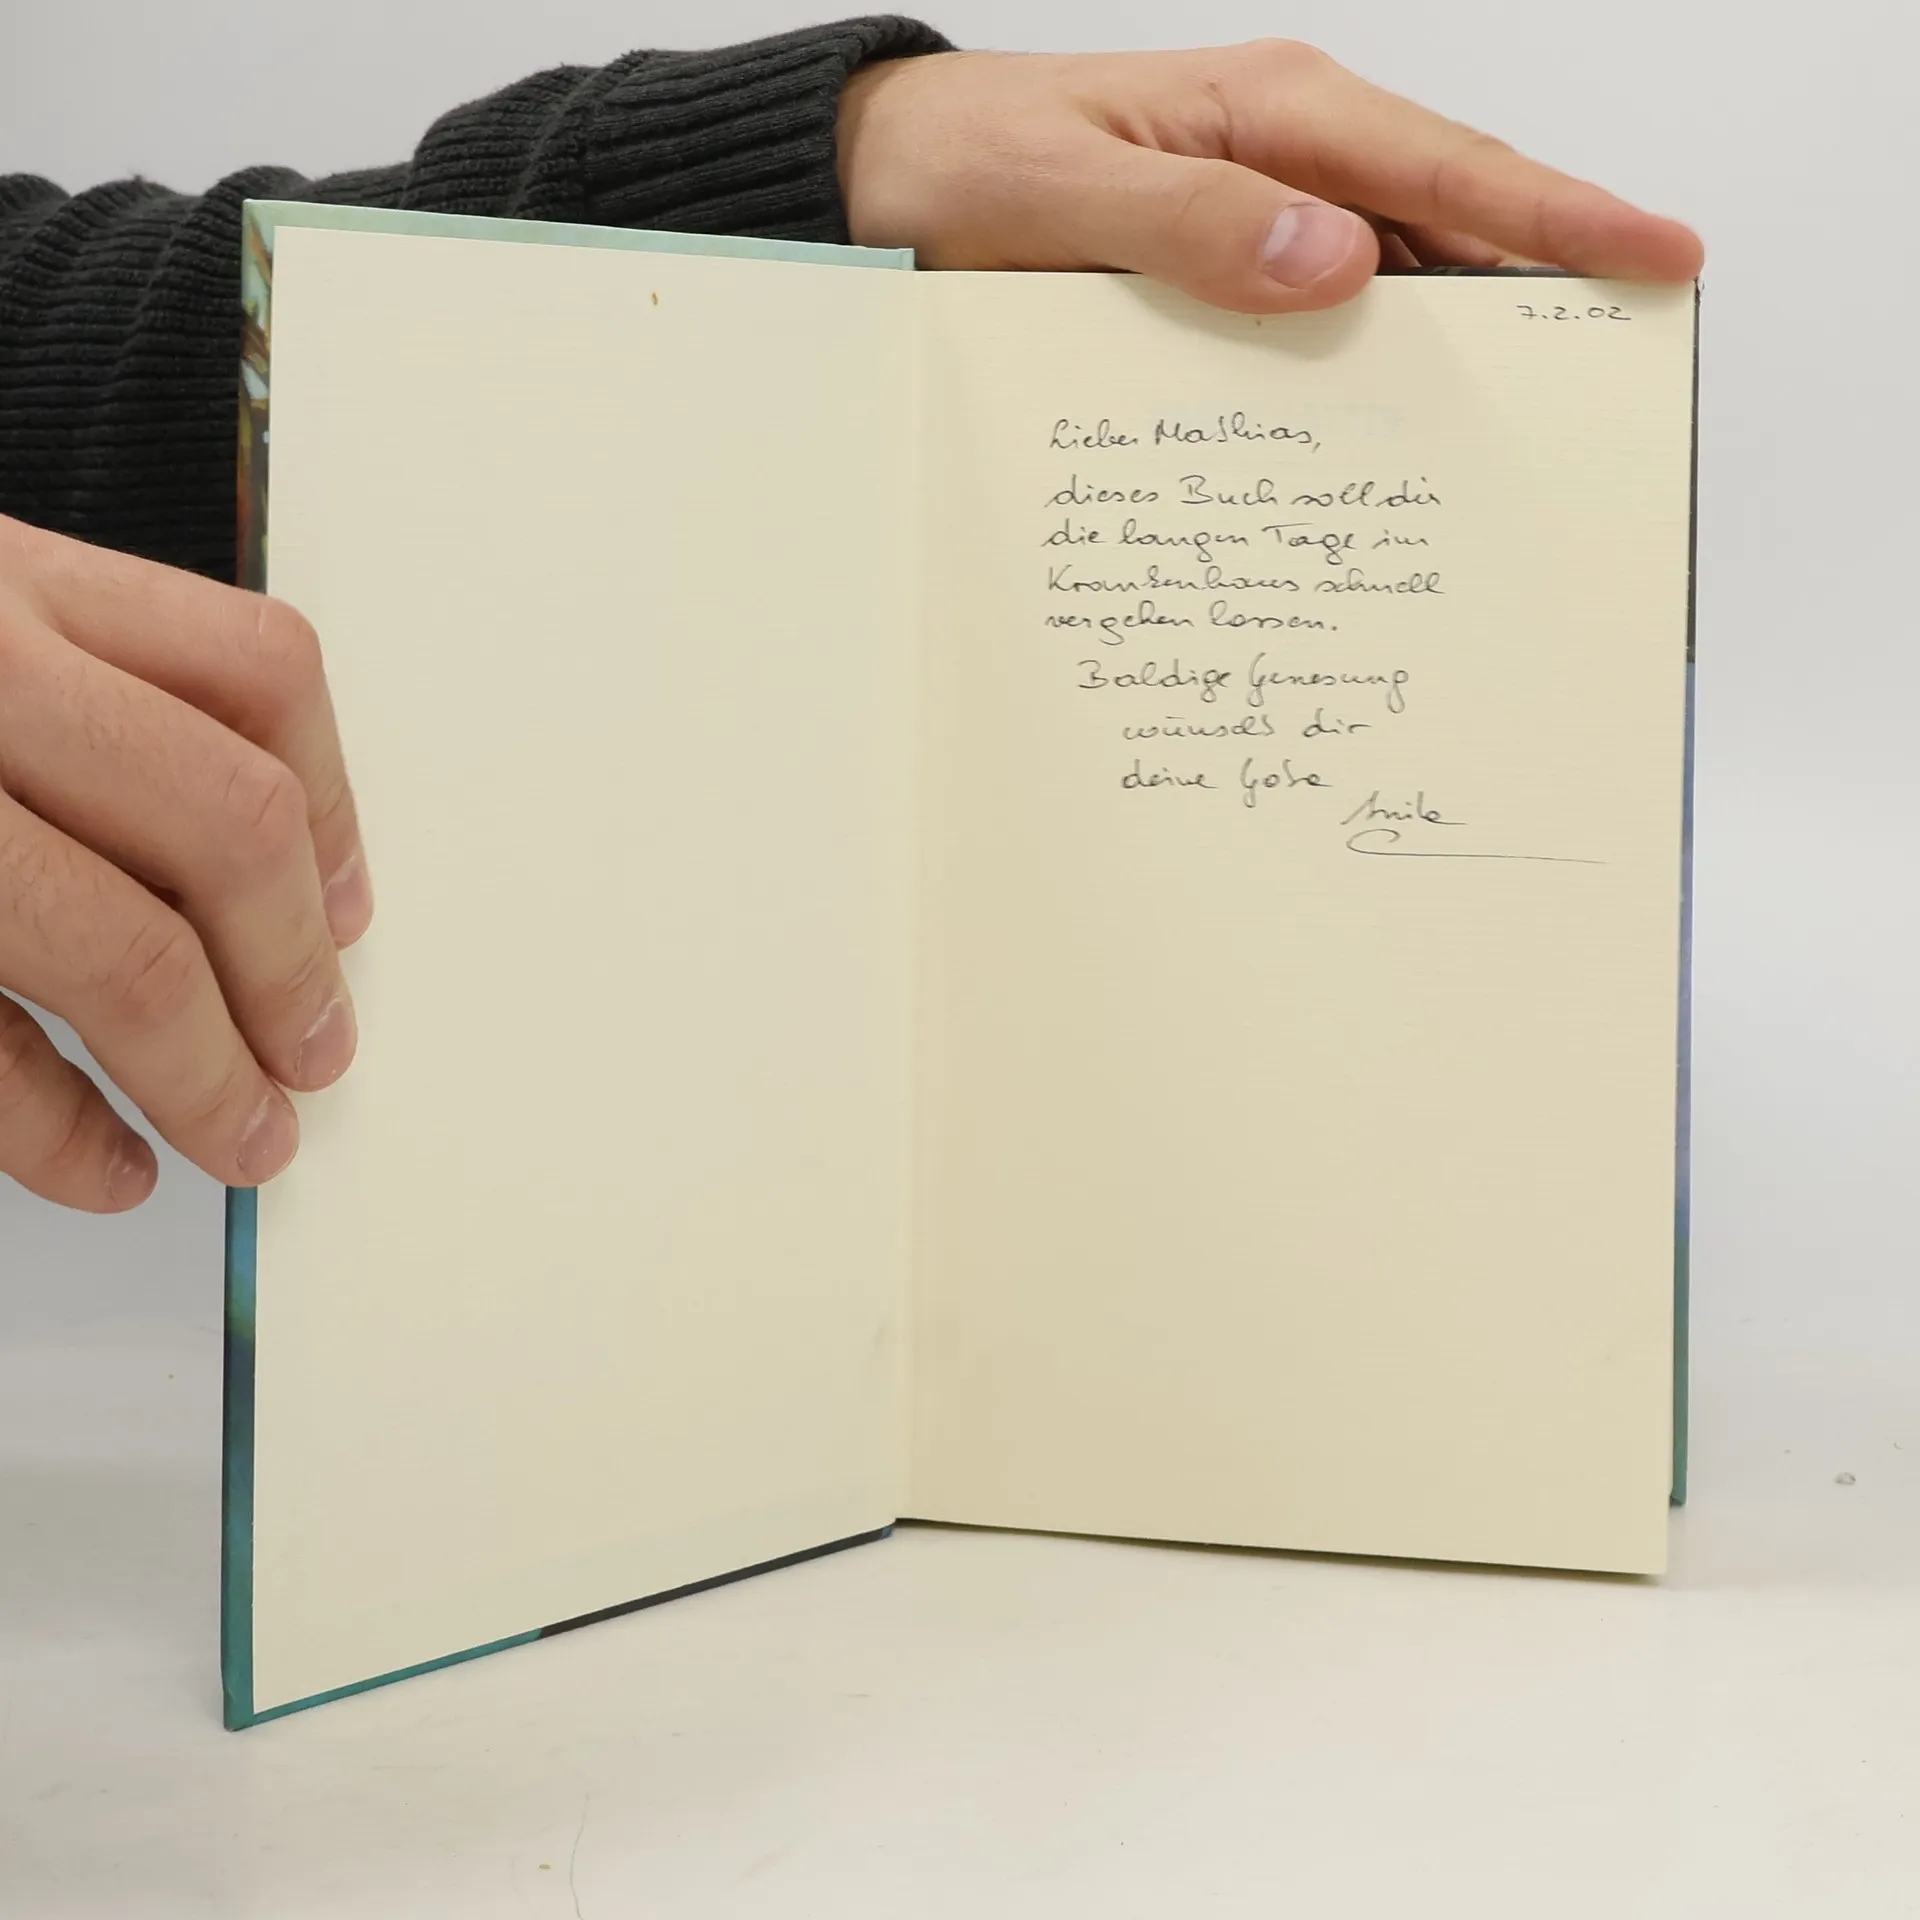 7.2.02
Lieber Mathias,
dieses Buch soll dir
die langen Tage im
Krankenhaus schnell
vergehen lassen.
Baldige Genesung
wünscht dir
deine Gote